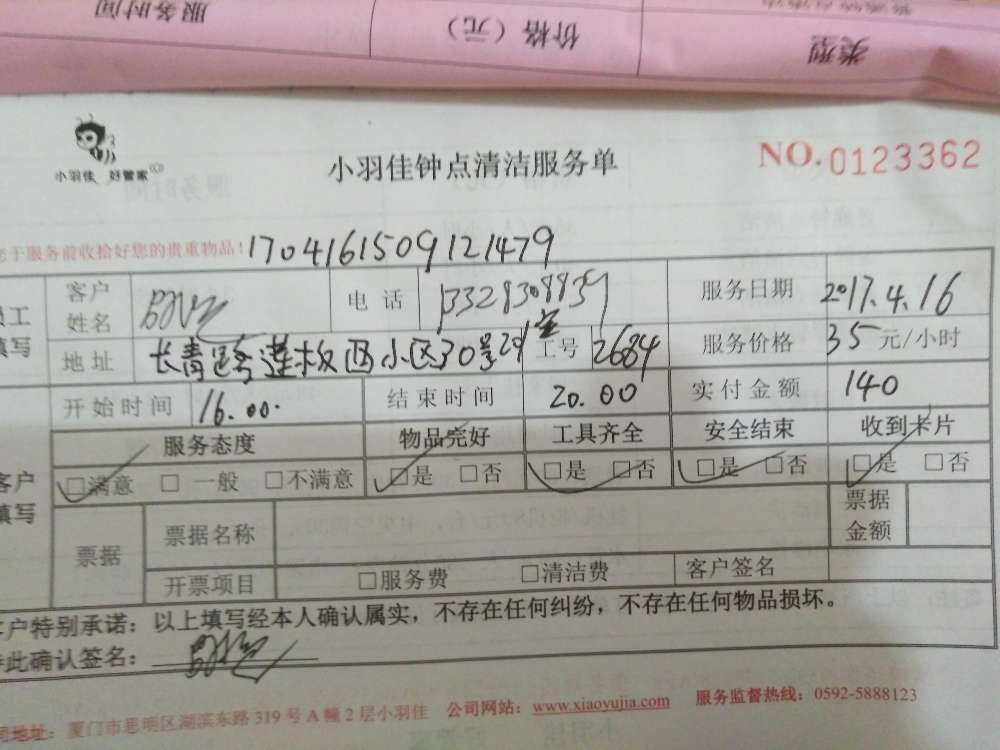 服务时间 价格（元） 类型
小羽佳 好管家
小羽佳钟点清洁服务单
NO.0123362
于服务前收拾好您的贵重物品！1704161509121479
员工填写 客户姓名 电话 服务日期 2017.4.16
地址 长青路莲板西小区30号291室 工号 2684 服务价格 35 元/小时
开始时间 16.00. 结束时间 20.00 实付金额 140
客户填写 服务态度 物品完好 工具齐全 安全结束 收到卡片
□满意 □一般 □不满意 □是 □否 □是 □否 □是 □否 □是 □否
票据 票据名称 票据金额
开票项目 □服务费 □清洁费 客户签名
客户特别承诺：以上填写经本人确认属实，不存在任何纠纷，不存在任何物品损坏。
此确认签名：
地址：厦门市思明区湖滨东路319号A幢2层小羽佳 公司网站：www.xiaoyujia.com 服务监督热线：0592-5888123